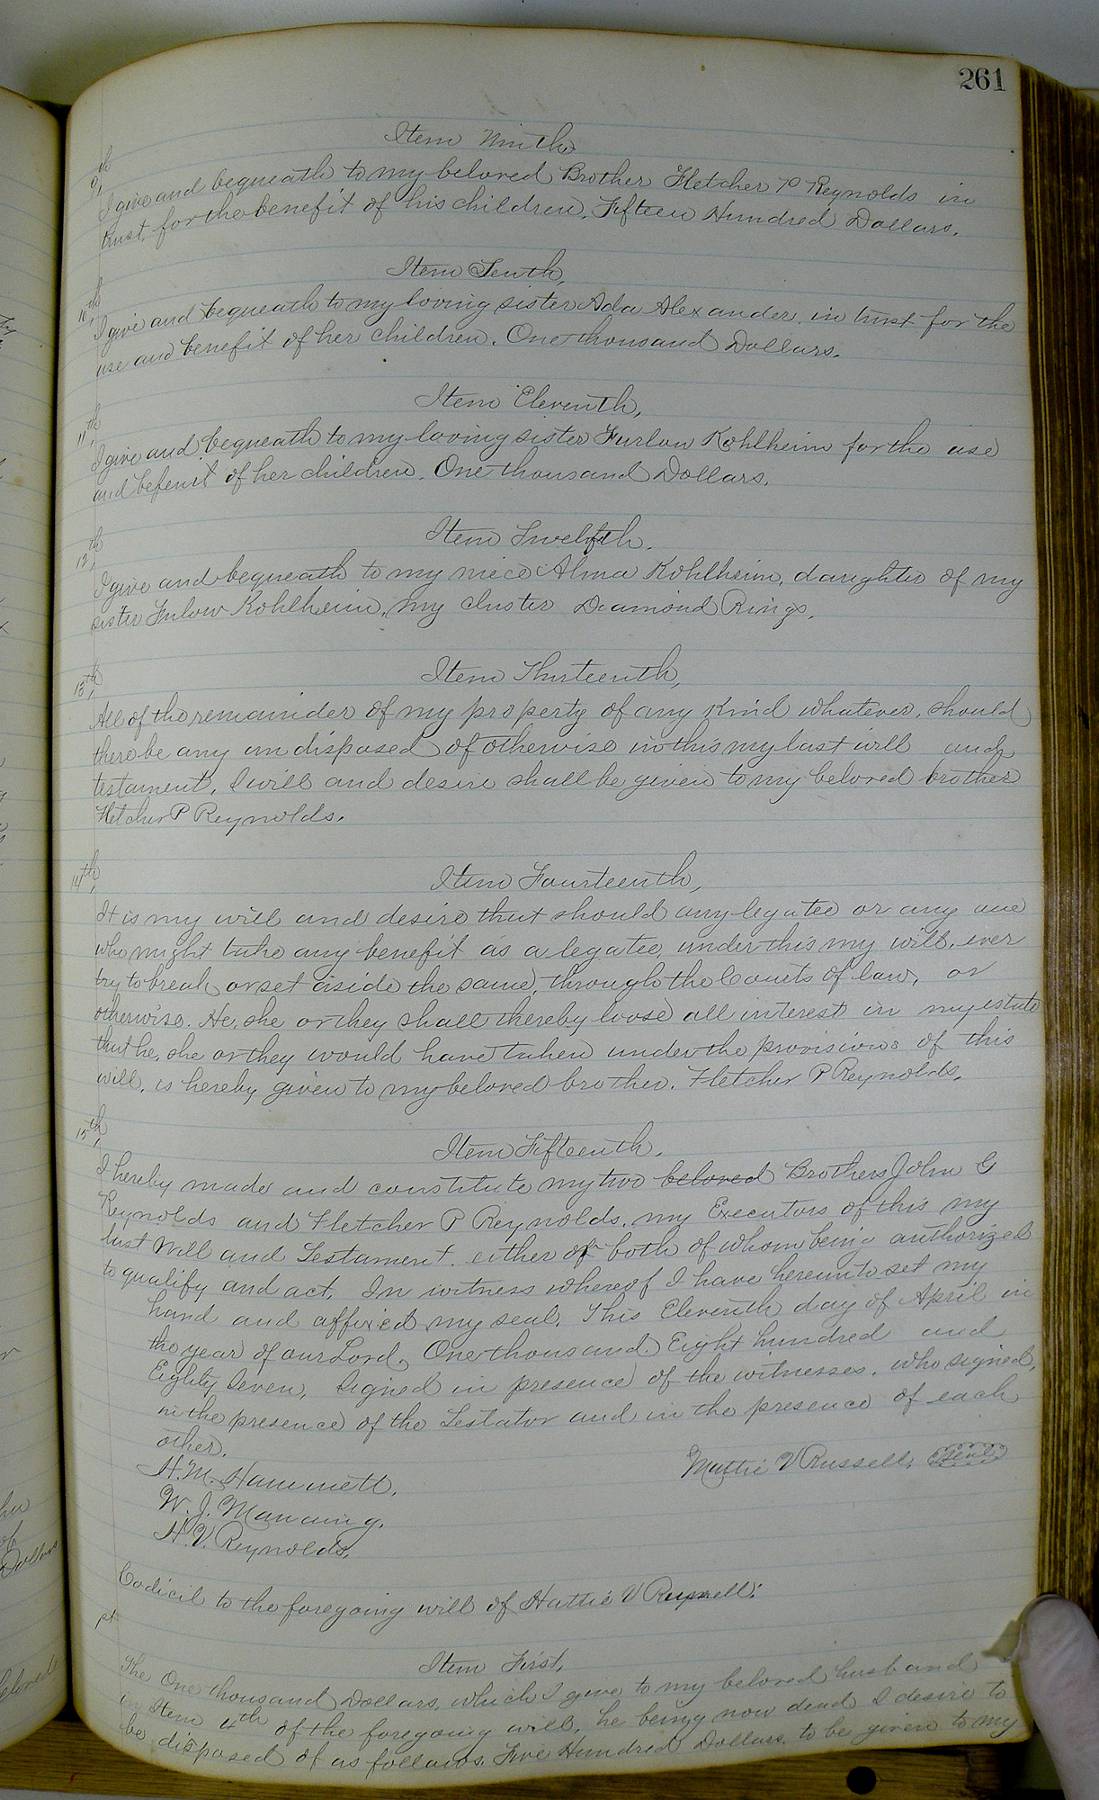 261
Item Ninth
9th,
I give and bequeath to my beloved Brother Fletcher P Reynolds in
trust for the benefit of his children, Fifteen Hundred Dollars.
Item Tenth,
10th,
I give and bequeath to my loving sister Ada Alexander in trust for the
use and benefit of her children. One thousand Dollars.
Item Eleventh,
11th,
I give and bequeath to my loving sister Furlow Kohlheim for the use
and befenit of her children. One thousand Dollars.
Item Twelfth.
12th,
I give and bequeath to my niece Alma Kohlheim, daughter of my
sister Fulow Kohlheim, my cluster Diamond Rings.
Item Thirteenth,
13th,
All of the remainder of my property of any kind whatever, should
there be any undisposed of otherwise in this my last will and
testament, I will and desire shall be given to my beloved brother
Fletcher P Reynolds.
Item Fourteenth,
14th,
It is my will and desire that should any legatee or any one
who might take any benefit as a legatee, under this my will, ever
try to break or set aside the same, through the Courts of law, or
otherwise. He, she or they shall thereby loose all interest in my estate
that he, she or they would have taken under the provisions of this
will, is hereby given to my beloved brother. Fletcher P Reynolds.
Item Fifteenth.
15th,
I hereby made and constitute my two beloved Brothers John G
Reynolds and Fletcher P Reynolds, my Executors of this my
last Will and Testament. either or both of whom being authorized
to qualify and act, In witness whereof I have hereunto set my
hand and affixed my seal, This Eleventh day of April in
the year of our Lord, One thousand Eight hundred and
Eighty Seven, Signed in presence of the witnesses, who signed,
in the presence of the Testator and in the presence of each
other.
Mattie V Russell, Seal
H. M. Hammett,
W. J. Manning,
H. V. Reynolds,
Codicil to the foregoing will of Hattie V Russell:
Item First,
1st
The One thousand Dollars, which I give to my beloved husband
in Item 4th of the foregoing will, he being now dead I desire to
be disposed of as follows. Five Hundred Dollars to be given to my